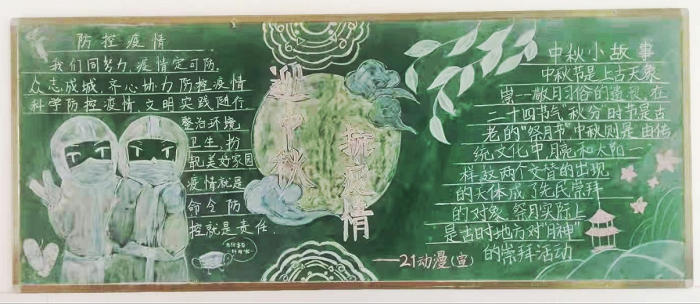 防控疫情
我们同努力,疫情定可防.
众志成城,齐心协力防控疫情
科学防控疫情文明实践随行
整治环境
卫生,扮
靓美好家园
疫情就是
命令防
控就是责任.
迎中秋
抗疫情
——21动漫(宣)
中秋小故事
中秋节是上古天象
崇一敝月习俗的遗裁,在
二十四节气"秋分"时节是古
老的"祭月节"中秋则是由传
统文化中,月亮和太阳一
样这两个交替的出现
的天体成了先民崇拜
的对象.祭月实际上
是古时地方对"月神"
的崇拜活动